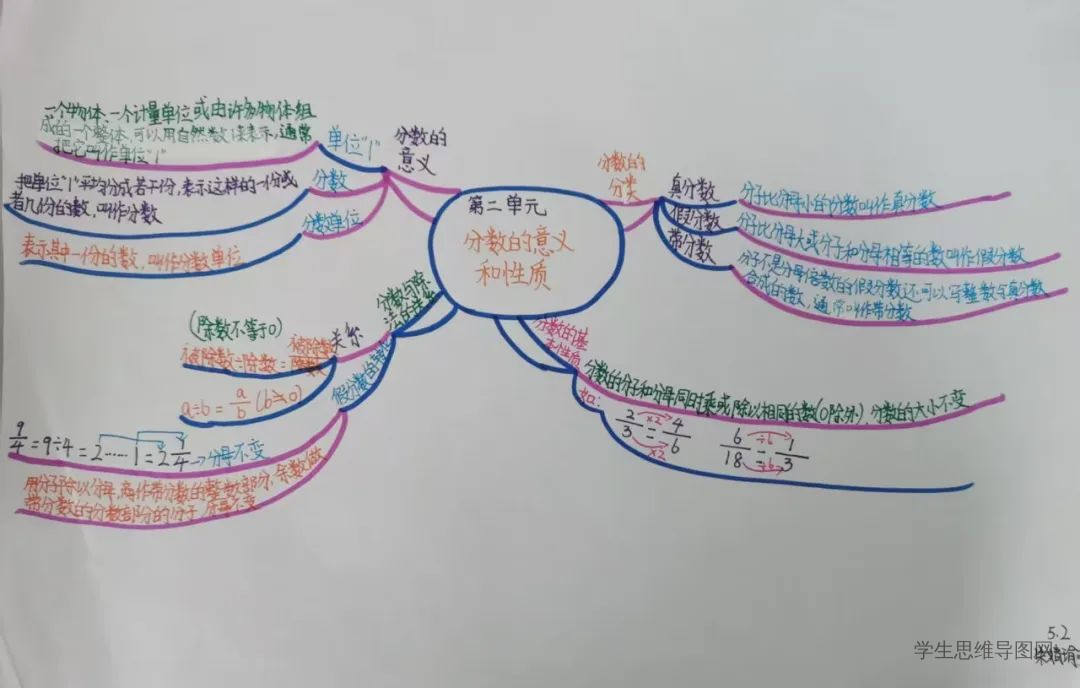 第二单元
分数的意义
和性质
分数的
意义
单位"1"
一个物体、一个计量单位或由许多物体组
成的一个整体,可以用自然数1来表示,通常
把它叫作单位"1"
分数
把单位"1"平均分成若干份,表示这样的一份或
者几份的数,叫作分数
分数单位
表示其中一份的数,叫作分数单位
分数的
分类
真分数
分子比分母小的分数叫作真分数
假分数
分子比分母大或分子和分母相等的数叫作假分数
带分数
分子不是分母倍数的假分数还可以写整数令真分数
合成的数,通常叫作带分数
分数与除
关系
(除数不等于0)
被除数÷除数=被除数/除数
a÷b=a/b(b≠0)
假分数的
9/4=9÷4=2……1=2 1/4→分母不变
用分子除以分母,商作带分数的整数部分,余数做
带分数的分数部分的分子,分母不变
分数的基
本性质
分数的分子和分母同时乘或除以相同的数(0除外),分数的大小不变
如:
2/3=4/6 ×2 ×2
6/18=1/3 ÷6 ÷6
5.2
学生思维导图网